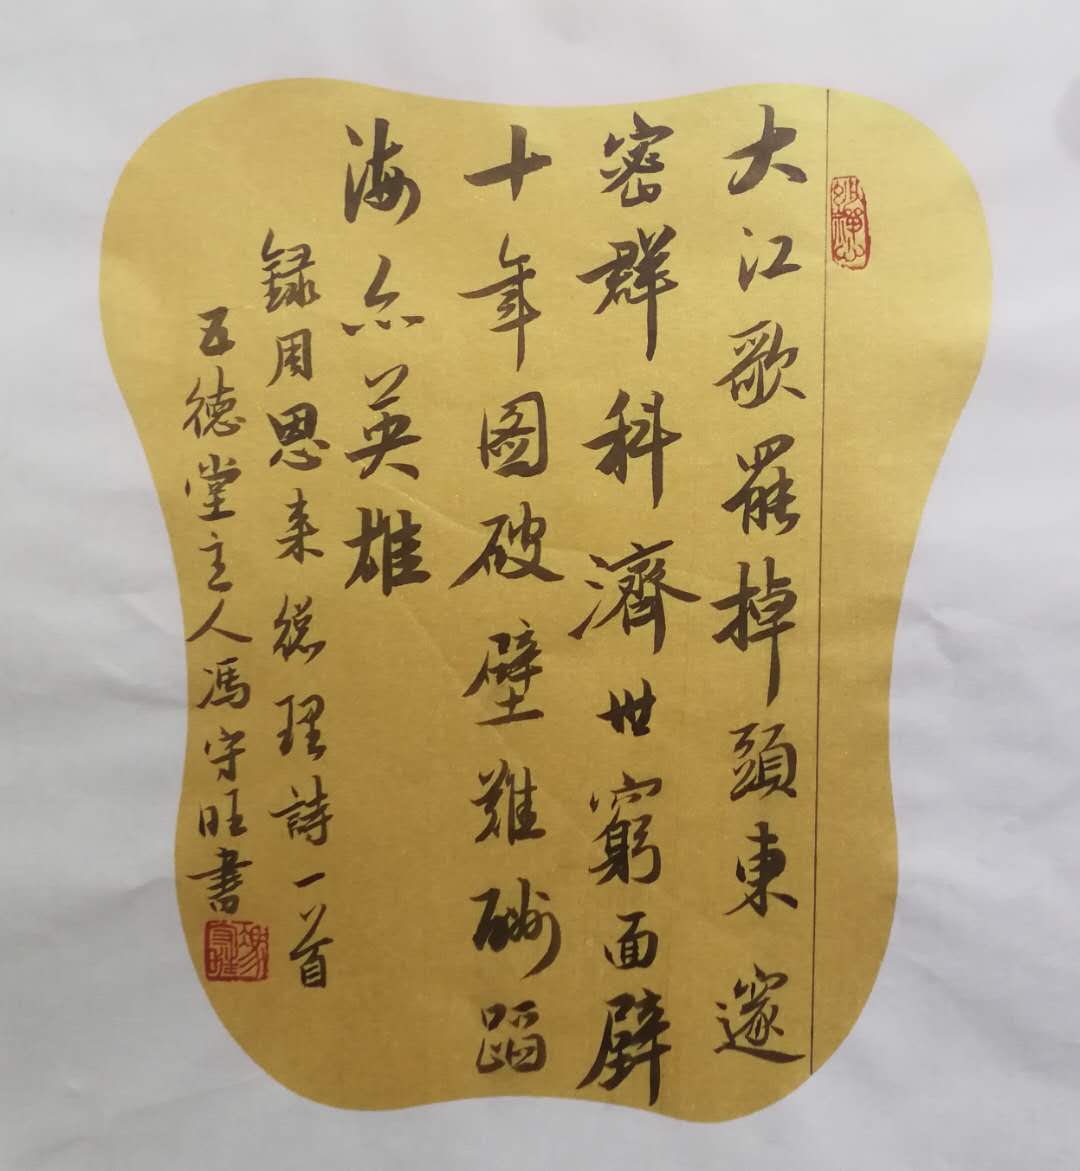 大江歌罷掉頭東邃
密群科濟世窮面壁
十年圖破壁難酬蹈
海亦英雄
録周恩来總理詩一首
五德堂主人馮守旺書
馮守旺